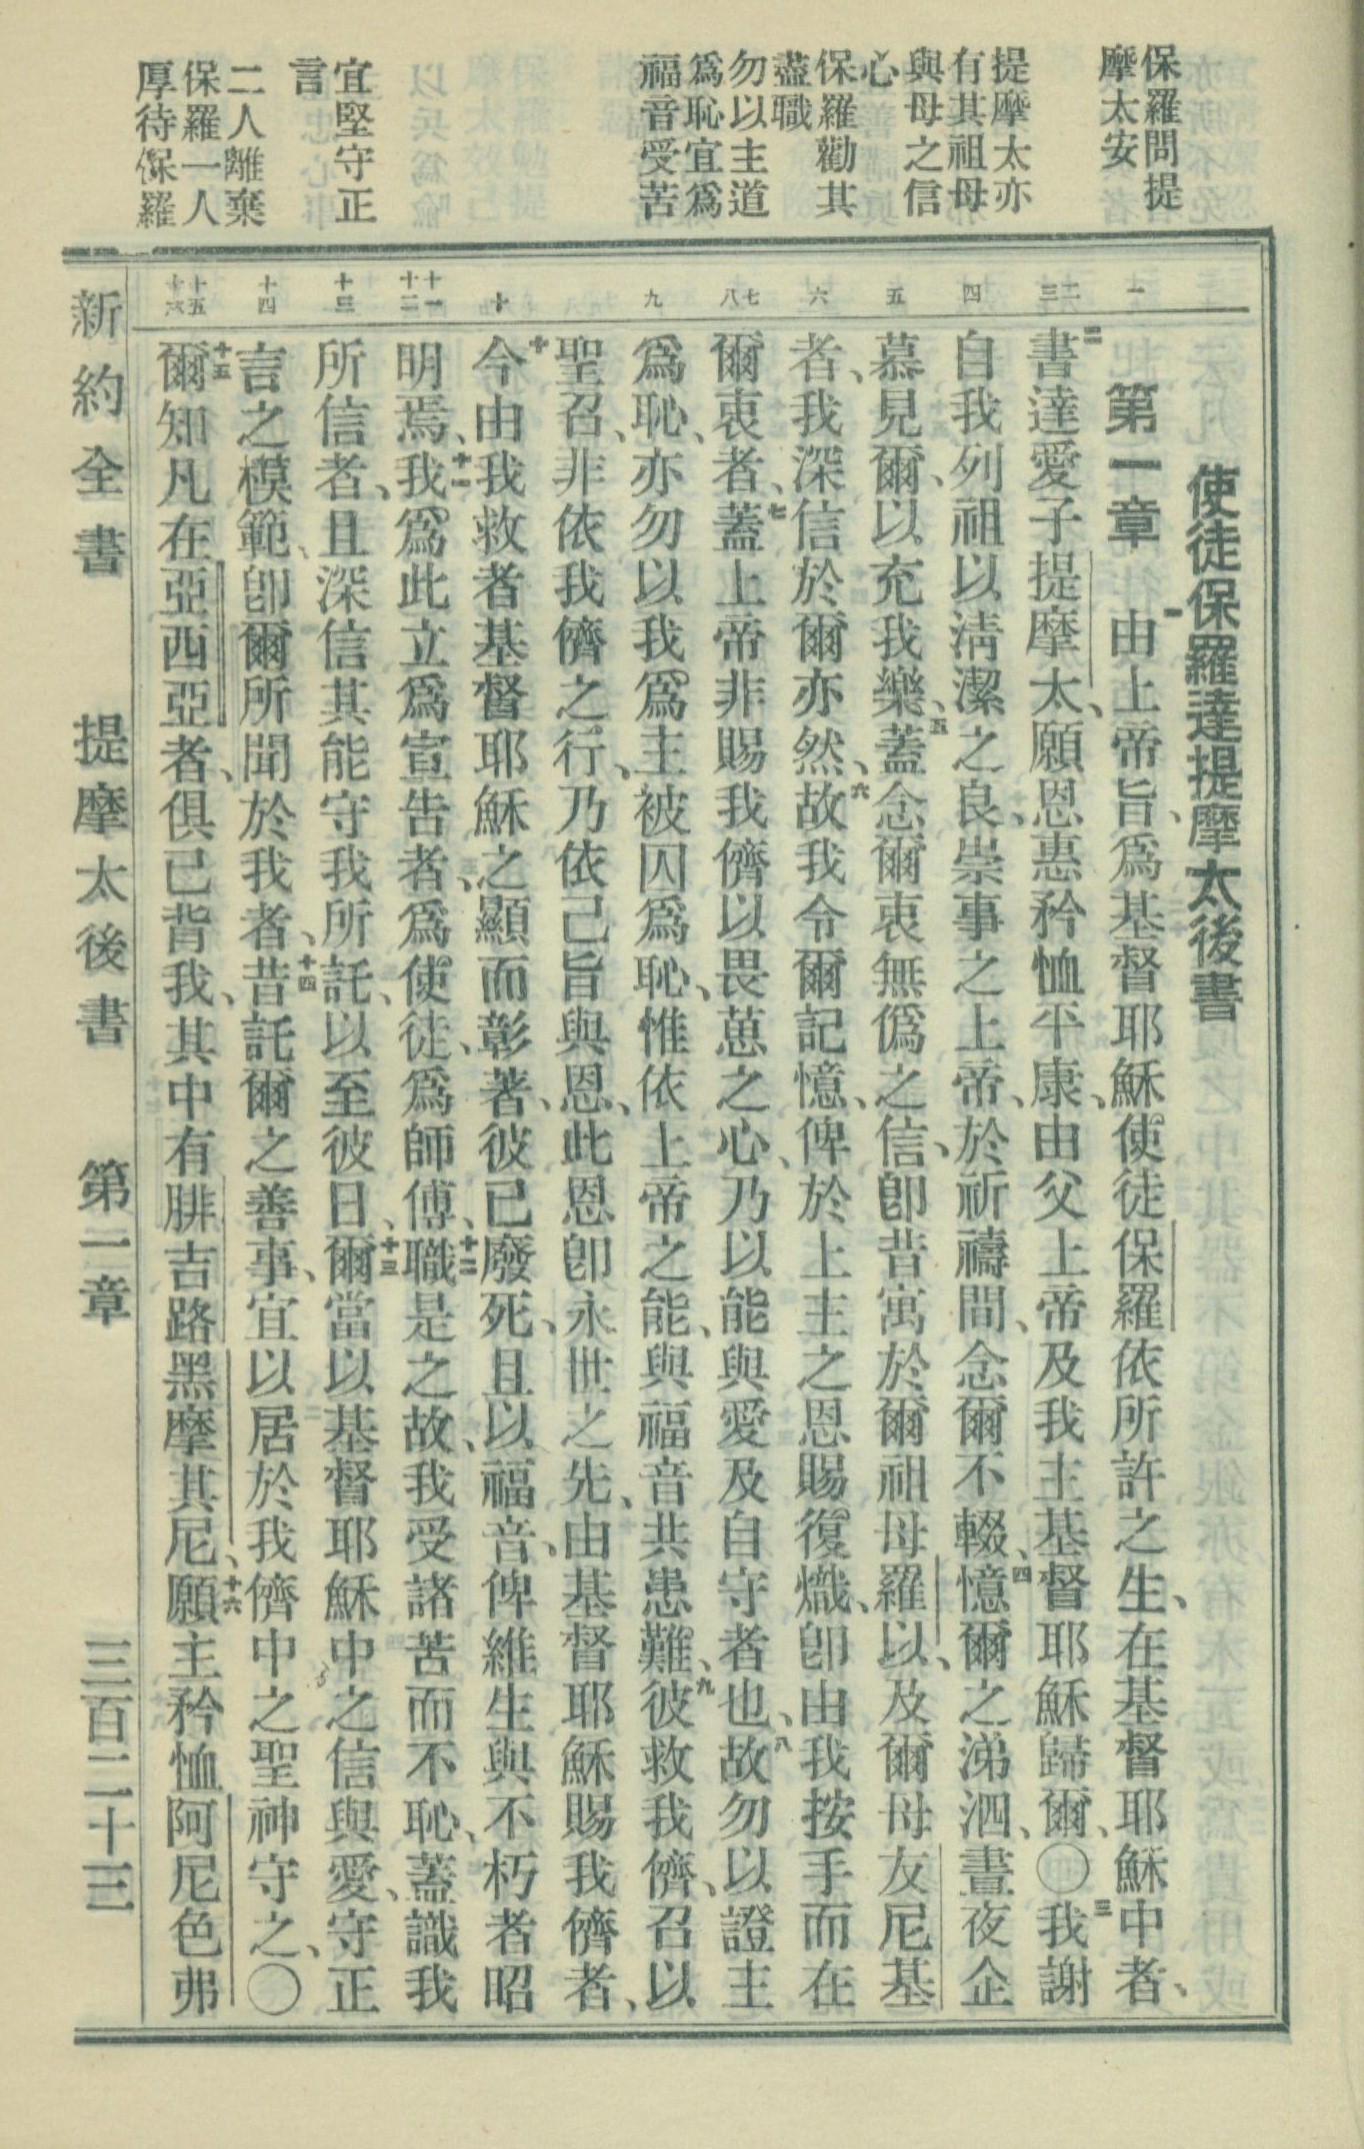 保羅問提
摩太安
提摩太亦
有其祖母
與母之信
心
保羅勸其
盡職
勿以主道
爲恥宜爲
福音受苦
宜堅守正
言
二人離棄
保羅一人
厚待保羅
一
二
三
四
五
六
七
八
九
十
十一
十二
十三
十四
十五
十六
使徒保羅達提摩太後書
第一章 一由上帝旨、爲基督耶穌使徒保羅依所許之生、在基督耶穌中者、
二書達愛子提摩太、願恩惠矜恤平康、由父上帝及我主基督耶穌歸爾、〇三我謝
自我列祖以淸潔之良、崇事之上帝、於祈禱間、念爾不輟、四憶爾之涕泗、晝夜企
慕見爾、以充我樂、五蓋念爾衷無僞之信、卽昔寓於爾祖母羅以、及爾母友尼基
者、我深信於爾亦然、六故我令爾記憶、俾於上主之恩賜復熾、卽由我按手而在
爾衷者、七蓋上帝非賜我儕以畏葸之心、乃以能與愛及自守者也、八故勿以證主
爲恥、亦勿以我爲主被囚爲恥、惟依上帝之能、與福音共患難、九彼救我儕、召以
聖召、非依我儕之行、乃依己旨與恩、此恩卽永世之先、由基督耶穌賜我儕者、
十今由我救者基督耶穌之顯而彰著、彼已廢死、且以福音、俾維生與不朽者昭
明焉、十一我爲此立爲宣告者、爲使徒、爲師傅、十二職是之故、我受諸苦而不恥、蓋識我
所信者、且深信其能守我所託、以至彼日、十三爾當以基督耶穌中之信與愛、守正
言之模範、卽爾所聞於我者、十四昔託爾之善事、宜以居於我儕中之聖神守之、〇
十五爾知凡在亞西亞者、俱已背我、其中有腓吉路黑摩其尼、十六願主矜恤阿尼色弗
新約全書 提摩太後書 第一章 三百二十三